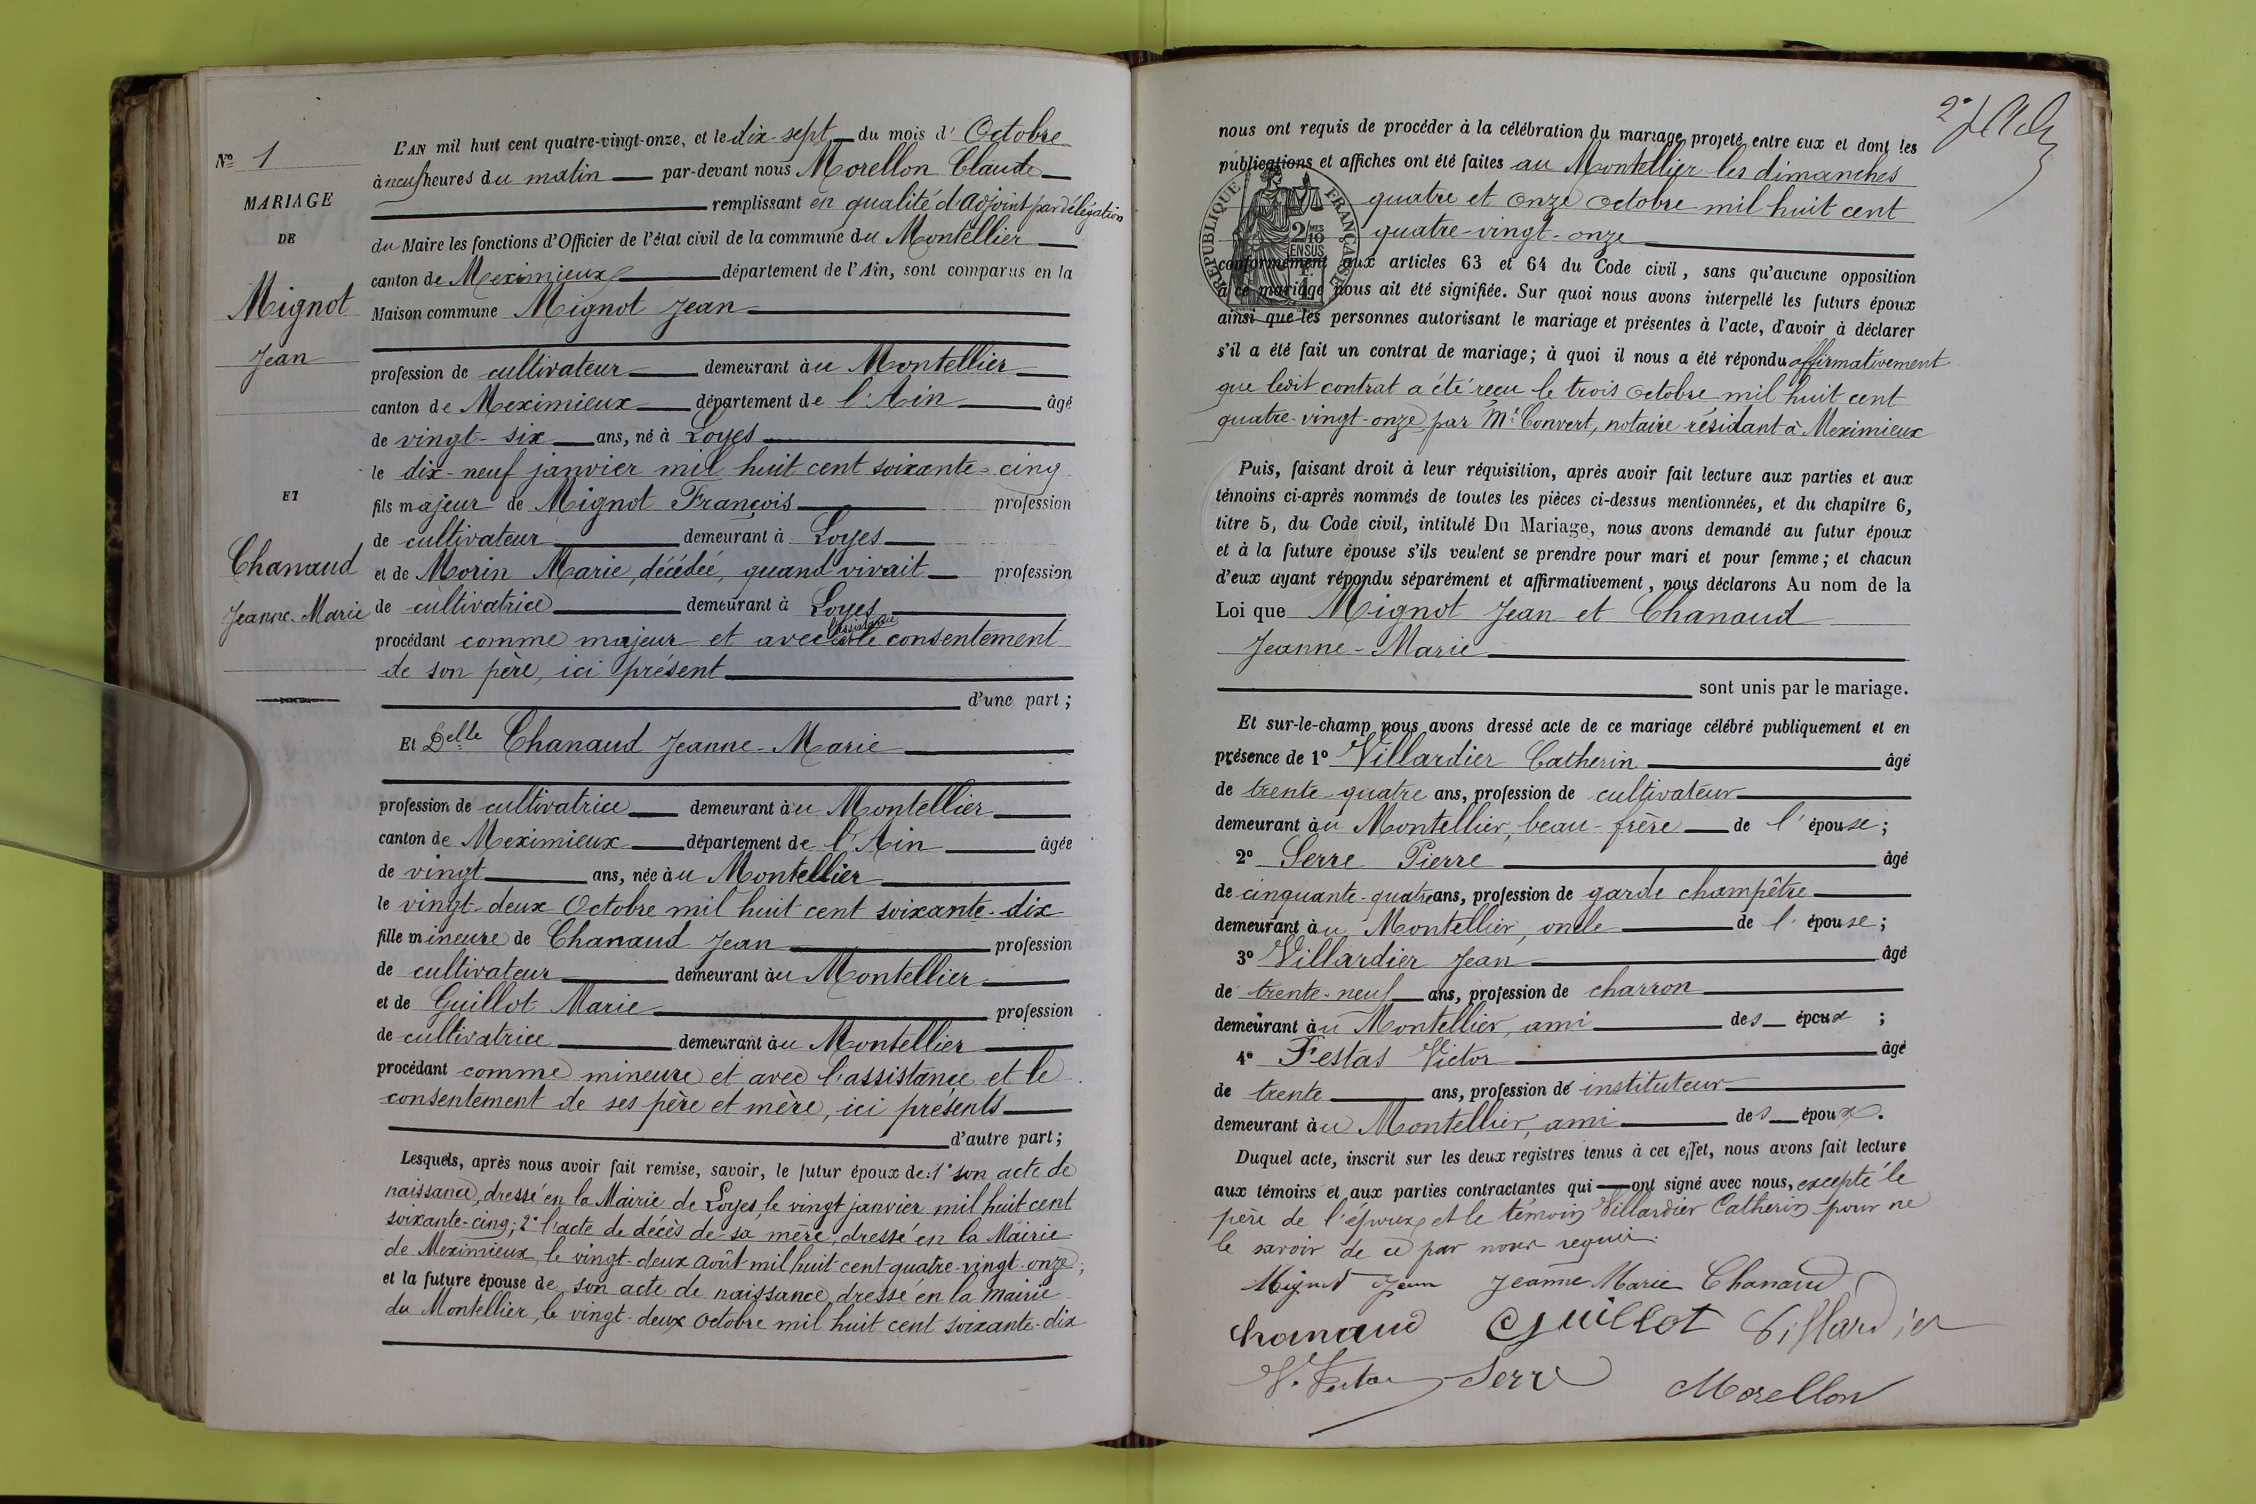 Nº 1
MARIAGE
DE
Mignot
Jean
ET
Chanaud
Jeanne-Marie
L'AN mil huit cent quatre-vingt-onze, et le dix-sept du mois d'Octobre
à neuf heures du matin par-devant nous Morellon Claude
remplissant en qualité d'adjoint par délégation
du Maire les fonctions d'Officier de l'état civil de la commune du Montellier
canton de Meximieux département de l'Ain, sont comparus en la
Maison commune Mignot Jean
profession de cultivateur demeurant au Montellier
canton de Meximieux département de l'Ain âgé
de vingt-six ans, né à Loyes
le dix-neuf janvier mil huit cent soixante-cinq
fils majeur de Mignot François profession
de cultivateur demeurant à Loyes
et de Morin Marie, décédée, quand vivait profession
de cultivatrice demeurant à Loyes
l'assistance
procédant comme majeur et avec et le consentement
de son père, ici présent
d'une part ;
Et Delle Chanaud Jeanne-Marie
profession de cultivatrice demeurant au Montellier
canton de Meximieux département de l'Ain âgée
de vingt ans, née au Montellier
le vingt-deux Octobre mil huit cent soixante-dix
fille mineure de Chanaud Jean profession
de cultivateur demeurant au Montellier
et de Guillot Marie profession
de cultivatrice demeurant au Montellier
procédant comme mineure et avec l'assistance et le
consentement de ses père et mère, ici présents
d'autre part ;
Lesquels, après nous avoir fait remise, savoir, le futur époux de : 1° son acte de
naissance, dressé en la Mairie de Loyes, le vingt janvier mil huit cent
soixante-cinq ; 2° l'acte de décès de sa mère, dressé en la Mairie
de Meximieux, le vingt-deux août mil huit cent quatre-vingt-onze ;
et la future épouse de son acte de naissance dressé en la mairie
du Montellier, le vingt-deux octobre mil huit cent soixante-dix
2e
nous ont requis de procéder à la célébration du mariage projeté entre eux et dont les
publications et affiches ont été faites au Montellier les dimanches
quatre et onze octobre mil huit cent
quatre-vingt-onze
RÉPUBLIQUE FRANÇAISE
2/10
EN SUS
conformément aux articles 63 et 64 du Code civil, sans qu'aucune opposition
à ce mariage nous ait été signifiée. Sur quoi nous avons interpellé les futurs époux
ainsi que les personnes autorisant le mariage et présentes à l'acte, d'avoir à déclarer
s'il a été fait un contrat de mariage ; à quoi il nous a été répondu affirmativement
que ledit contrat a été reçu le trois octobre mil huit cent
quatre-vingt-onze par Me Convert, notaire résidant à Meximieux
Puis, faisant droit à leur réquisition, après avoir fait lecture aux parties et aux
témoins ci-après nommés de toutes les pièces ci-dessus mentionnées, et du chapitre 6,
titre 5, du Code civil, intitulé Du Mariage, nous avons demandé au futur époux
et à la future épouse s'ils veulent se prendre pour mari et pour femme ; et chacun
d'eux ayant répondu séparément et affirmativement, nous déclarons Au nom de la
Loi que Mignot Jean et Chanaud
Jeanne-Marie
sont unis par le mariage.
Et sur-le-champ nous avons dressé acte de ce mariage célébré publiquement et en
présence de 1° Villardier Catherin âgé
de trente-quatre ans, profession de cultivateur
demeurant au Montellier, beau-frère de l'épouse ;
2° Serre Pierre âgé
de cinquante-quatre ans, profession de garde champêtre
demeurant au Montellier, oncle de l'épouse ;
3° Villardier Jean âgé
de trente-neuf ans, profession de charron
demeurant au Montellier, ami des époux ;
4° Festas Victor âgé
de trente ans, profession de instituteur
demeurant au Montellier, ami des époux.
Duquel acte, inscrit sur les deux registres tenus à cet effet, nous avons fait lecture
aux témoins et aux parties contractantes qui ont signé avec nous, excepté le
père de l'époux et le témoin Villardier Catherin pour ne
le savoir de ce par nous requis.
Mignot Jean Jeanne Marie Chanaud
Chanaud Guillot Villardier
V. Festas Serre
Morellon